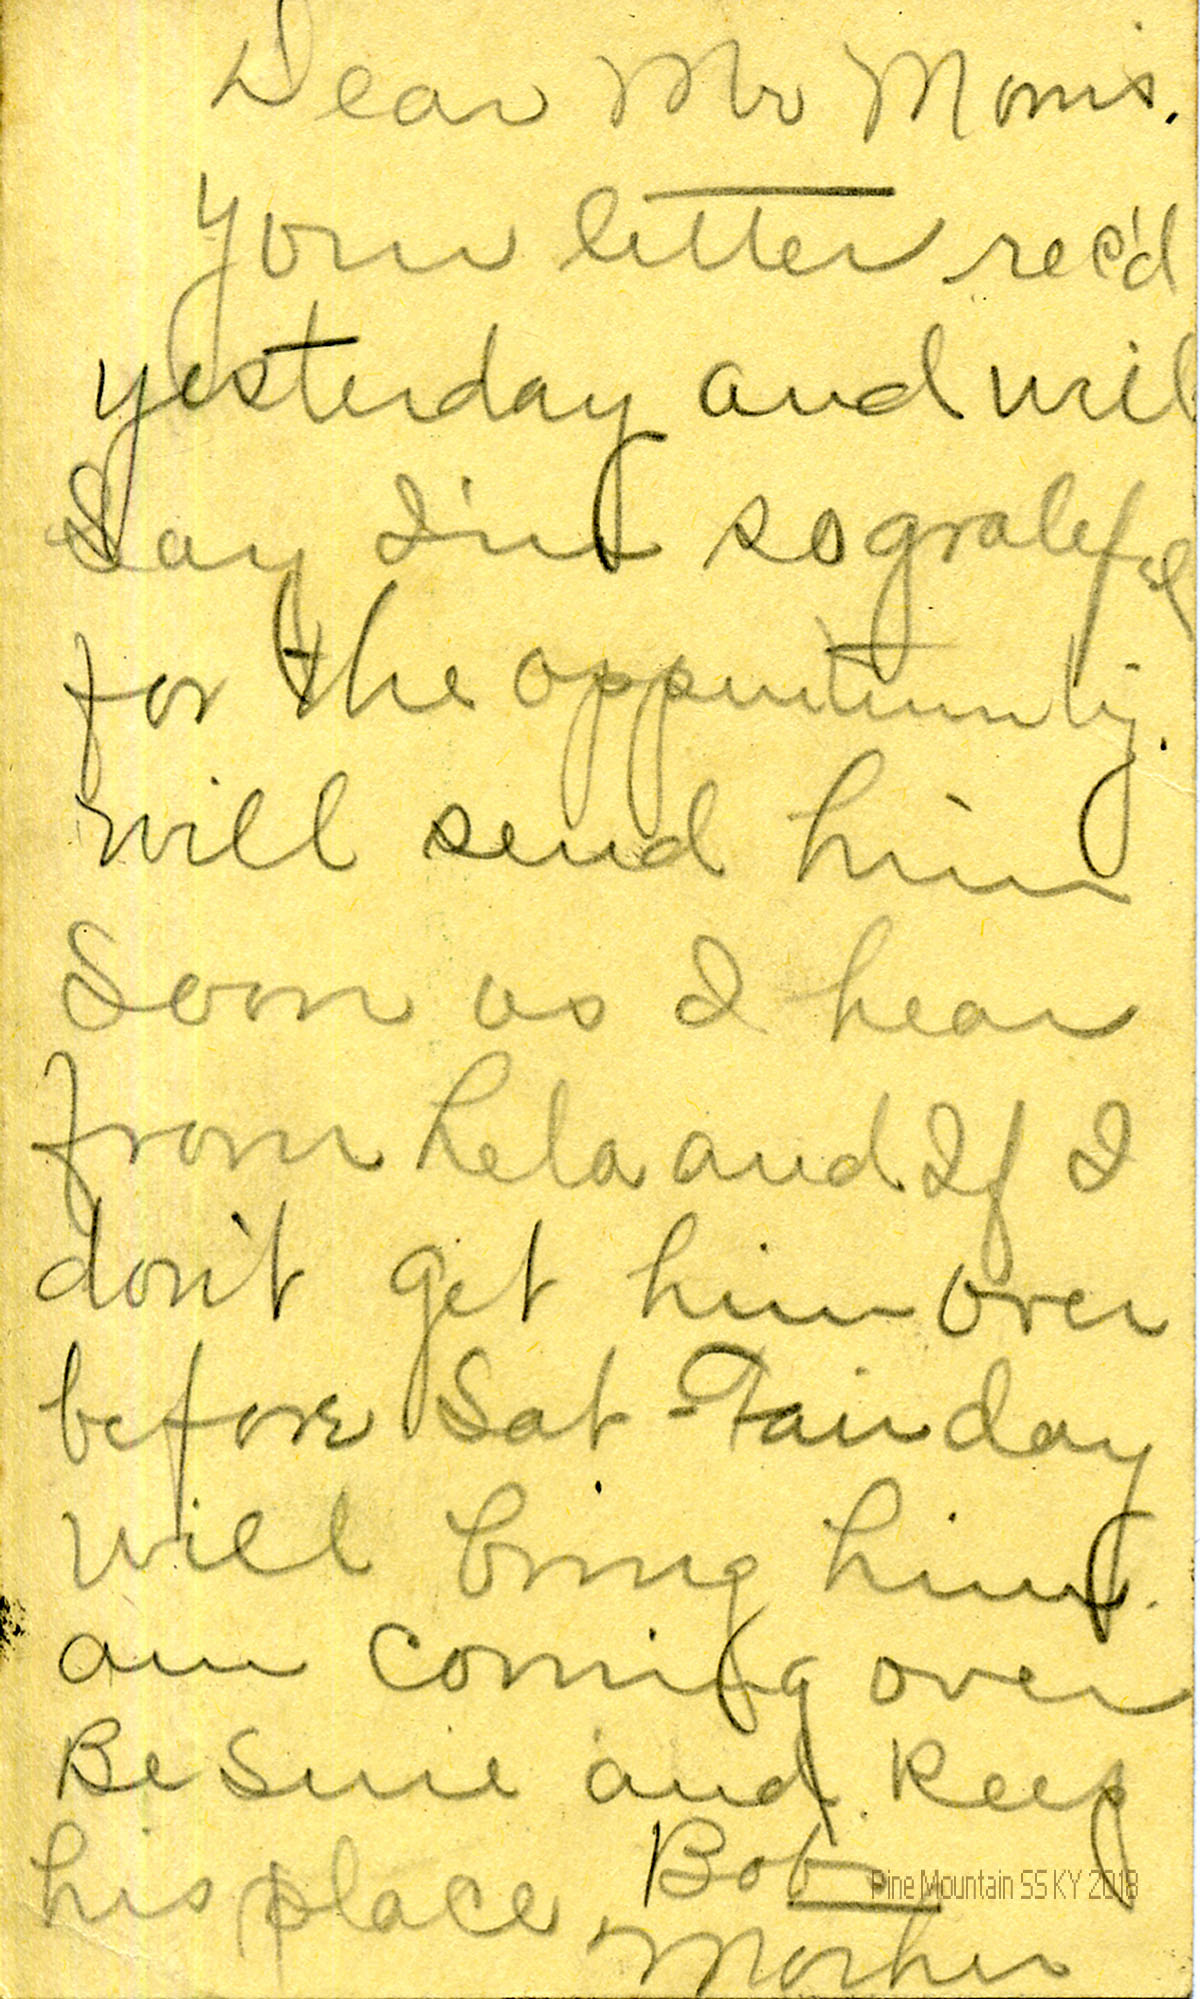 Dear Mr Morris.
Your letter rec'd
yesterday and will
Say I'm so grateful
for the opportunity.
will send him
Soon as I hear
from Lela and If I
don't get him over
before Sat - Fair day
will bring him.
am coming over
Be Sure and Keep
his place Bob
Mother
Pine Mountain SS KY 2018